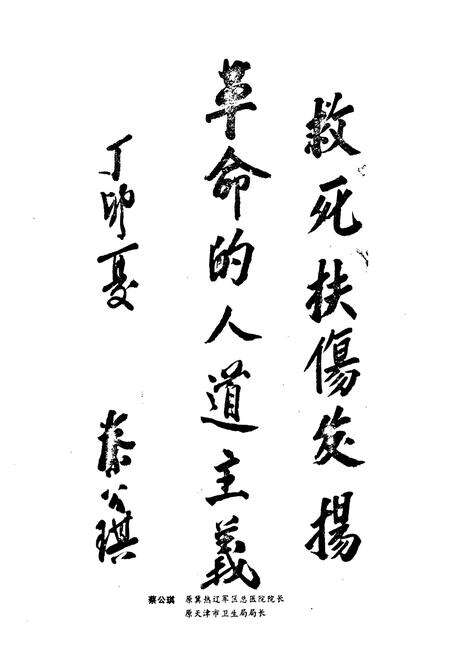 救死扶傷发揚
革命的人道主義
丁卯夏
蔡公琪
蔡公琪 原冀热辽军区总医院院长
原天津市卫生局局长